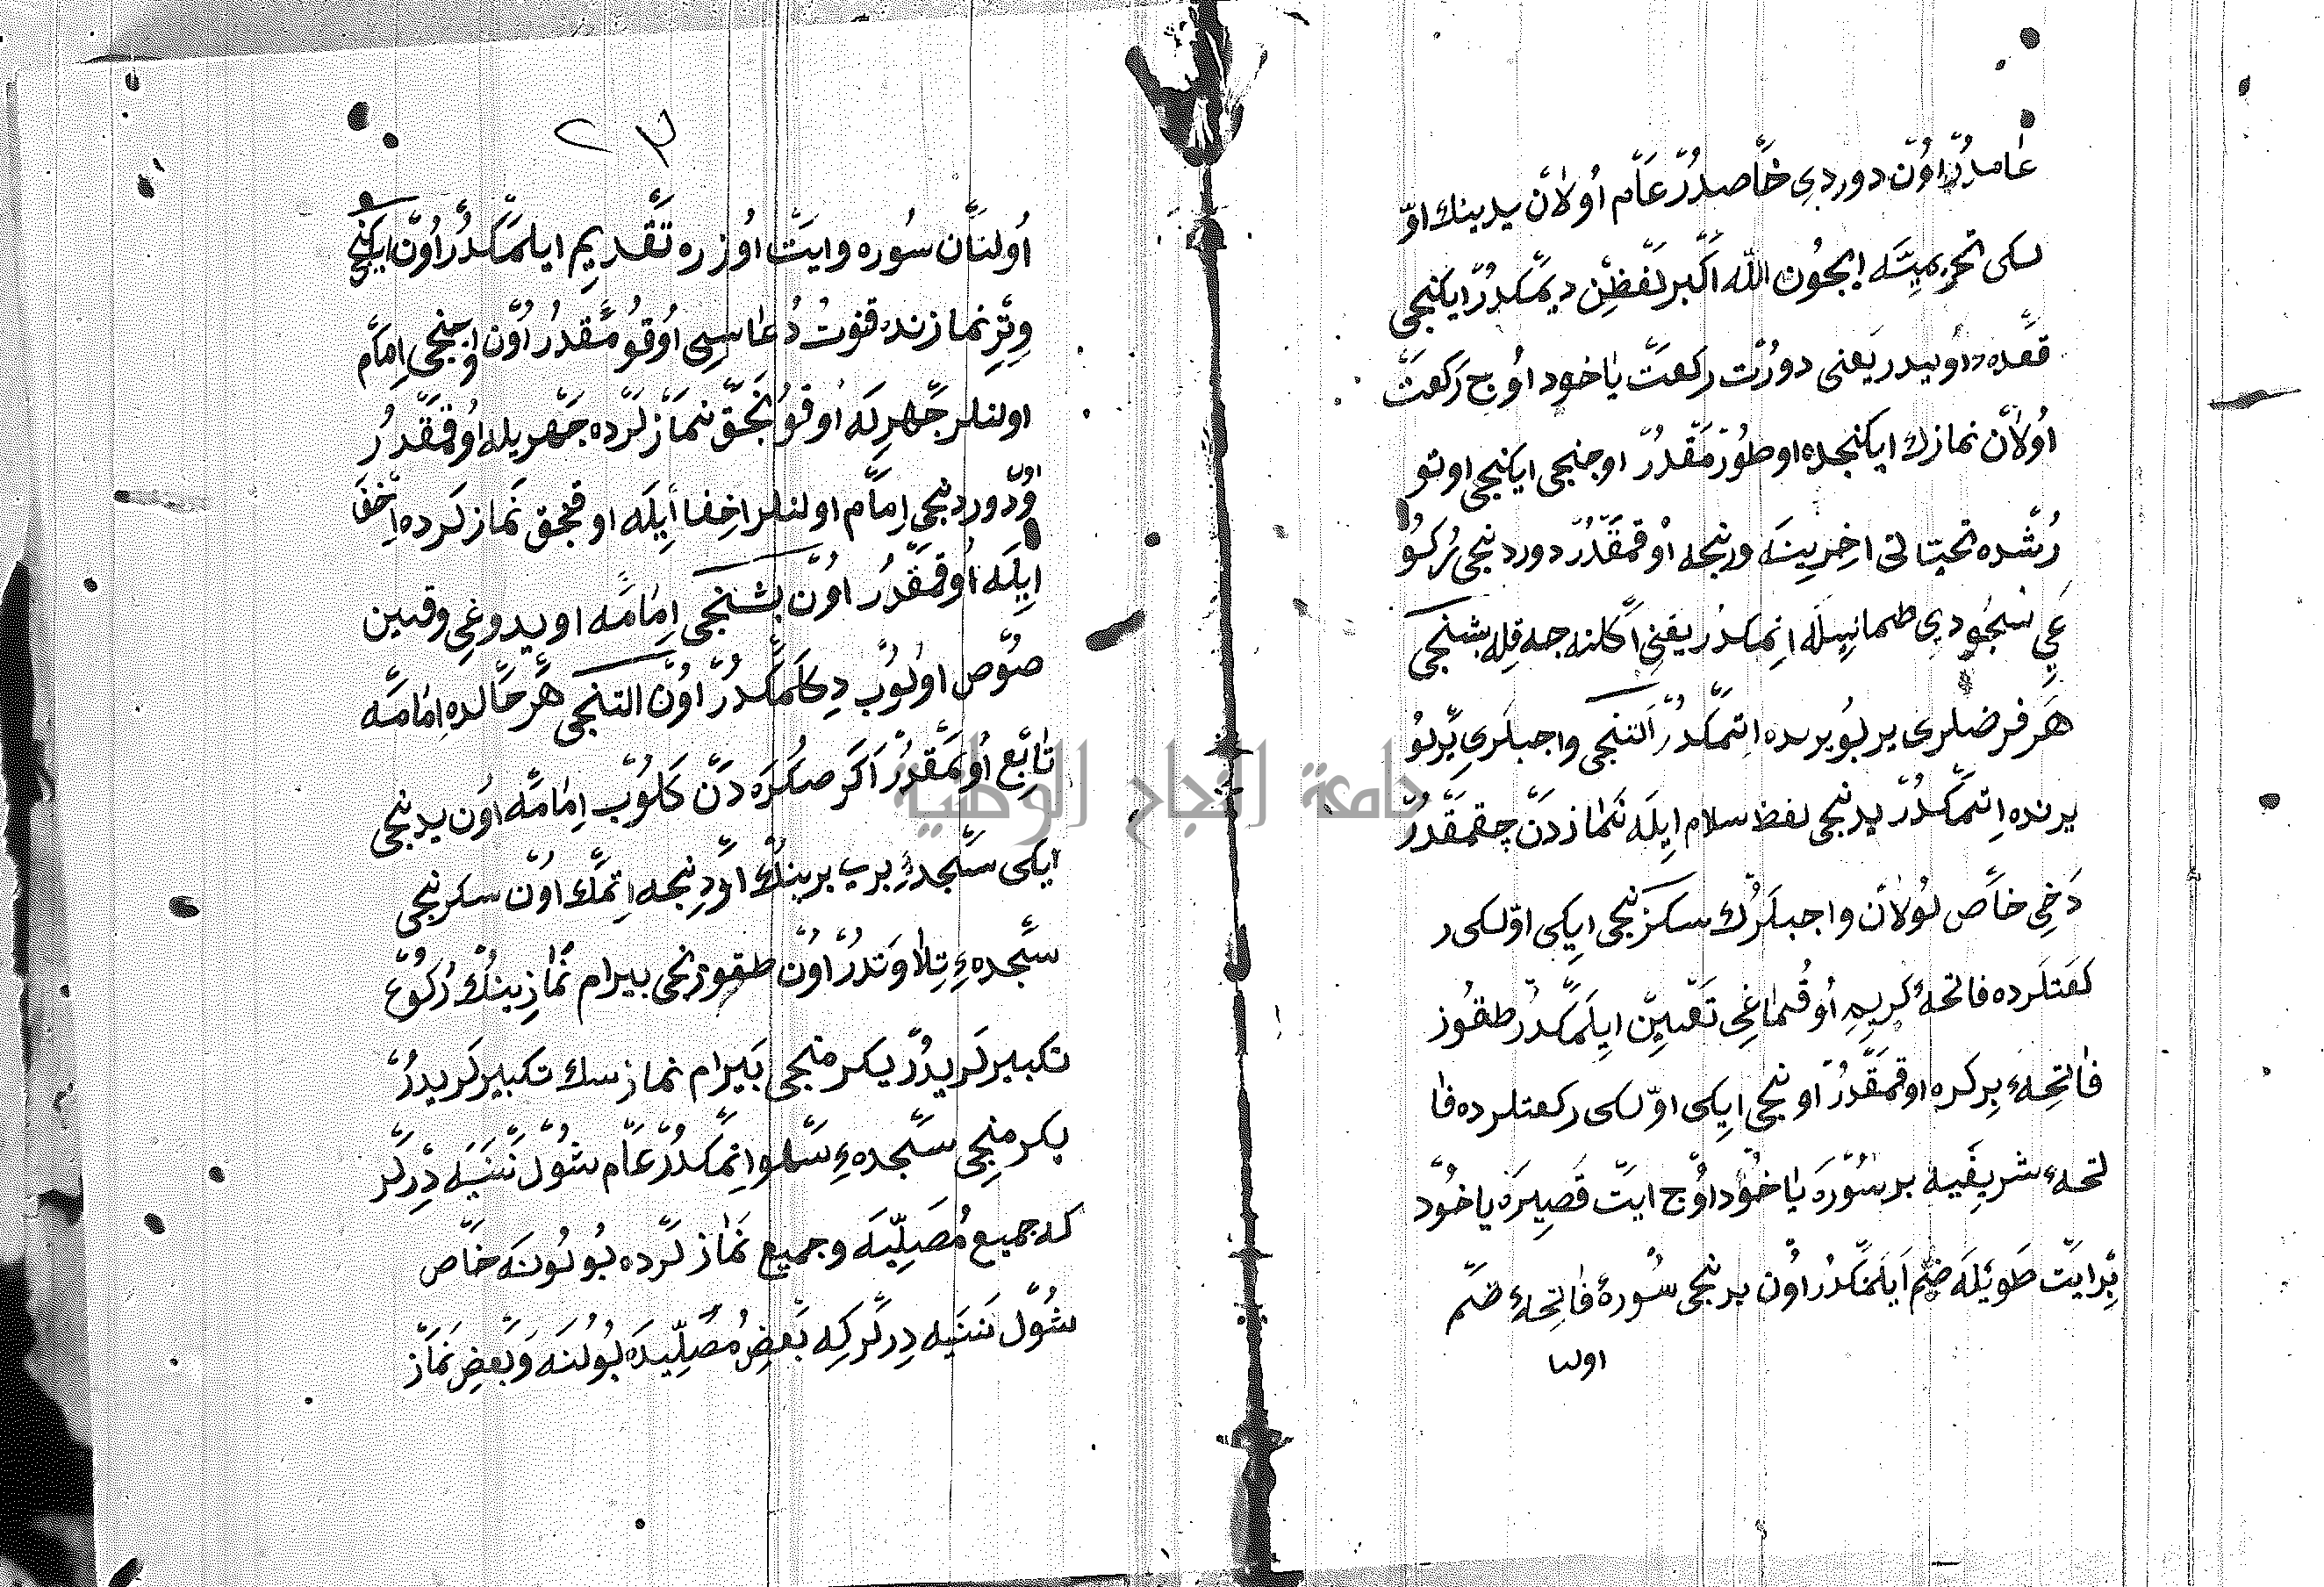 عامدر اون دوردی خاصدر عام اولان یدینك او
لكی تحریمیته ایجون الله اكبر لفظن دیمكدر ایكنجی
قعده اوییدر یعنی دورت ركعت یاخود اوج ركعت
اولان نمازك ایكنجده اوطورمقدر اوجنجی ایكنجی اوتو
رشده تحیتاتی اخرینه ورنجه اوقمقدر دوردنجی ركو
عی سجودی طمانیله اتمكدر یعنی اكلنه جه قله بشنجی
هر فرضلری یرلو یرنده اتمكدر التنجی واجبلری یرلو
یرنده اتمكدر یدنجی لفظ سلام ایله نمازدن چقمقدر
دخی خاص اولان واجبلرك سكزنجی ایكی اولكی ر
كعتلرده فاتحهٔ كریمه اوقماغی تعیین ایلمكدر طقوز
فاتحهٔ بركره اوقمقدر اونجی ایكی اولكی ركعتلرده فا
تحهٔ شریفیه برسوره یاخود اوج ایت قصیره یاخود
بر ایت طویله ضم ایلمكدر اون برنجی سورهٔ فاتحهٔ ضم
اولنا
٢٣
اولنان سوره وایت اوزره تقدیم ایلمكدر اون ایكنجی
وتر نمازنده قنوت دعاسی اوقومقدر اون اوجنجی امام
اولنلر جهرله اوقونجق نمازلرده جهریله اوقمقدر
اون دوردنجی امام اولنلر اخفا ایله اوقنجق نمازلرده اخفا
ایله اوقمقدر اون بشنجی امامه اویدوغی وقتین
صوص اولوب دكلمكدر اون التنجی هر حالده امامه
تابع اولمقدر اكر صكره دن كلوب امامه اون یدنجی
ایكی سجدهٔ برب برینك اردنجه اتمك اون سكزنجی
سجدهٔ تلاوتدر اون طقوزنجی بیرام نمازینك ركوع
تكبیرلریدر یكرمنجی بیرام نمازینك تكبیرلریدر
یكرمنجی سجدهٔ سهو اتمكدر عام شول نسنیه درلر
كه جمیع مصلیه وجمیع نمازلرده بولونه خاص
شول نسنیه درلر كه بعض مصلیده بولنه وبعض نماز